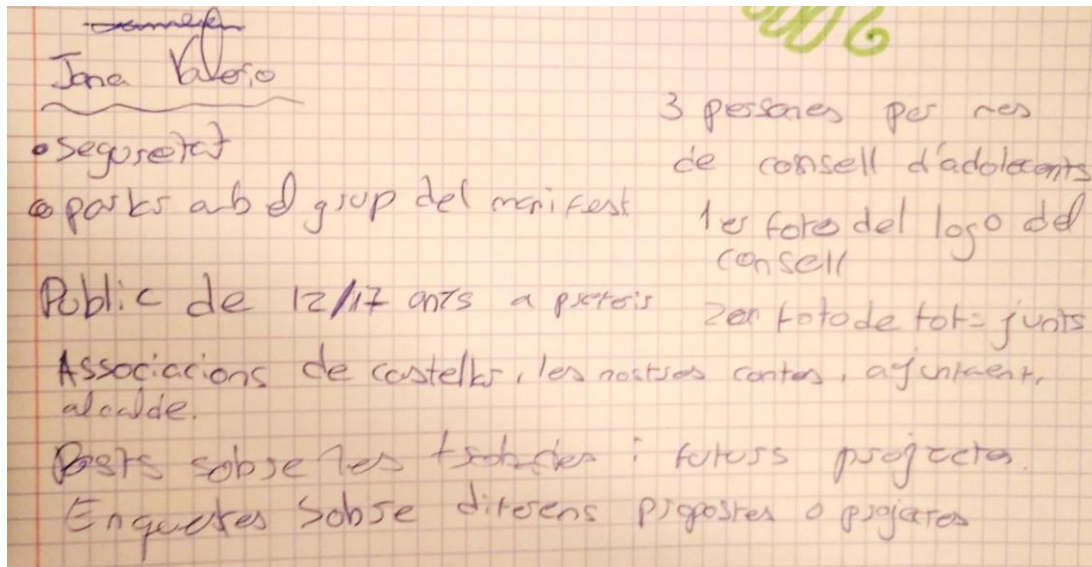 Jana Valerio
• Seguretat
• parlar amb el grup del manifest
Públic de 12/17 anys a
Associacions de castellar, les nostres contes, ajuntament,
alcalde.
Posts sobre les trobades i futurs projectes.
Enquestes sobre diferens propostes o projectes
3 persones per mes
de consell d'adolecents
1er foto del logo del
consell
2on foto de tots junts